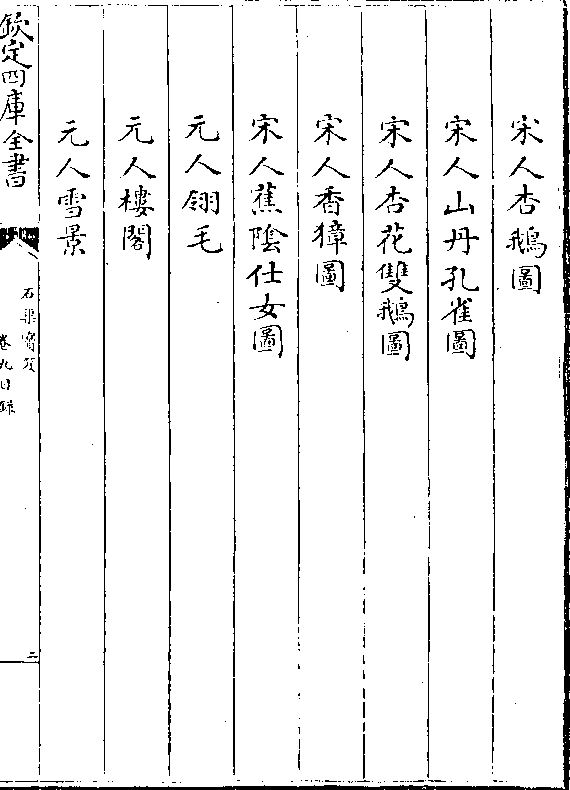 宋人杏鵝圖
宋人山丹孔雀圖
宋人杏花雙鵝圖
宋人香獐圖
宋人蕉陰仕女圖
元人翎毛
元人樓閣
元人雪景
欽定四庫全書
石渠寶笈
卷九目録
二